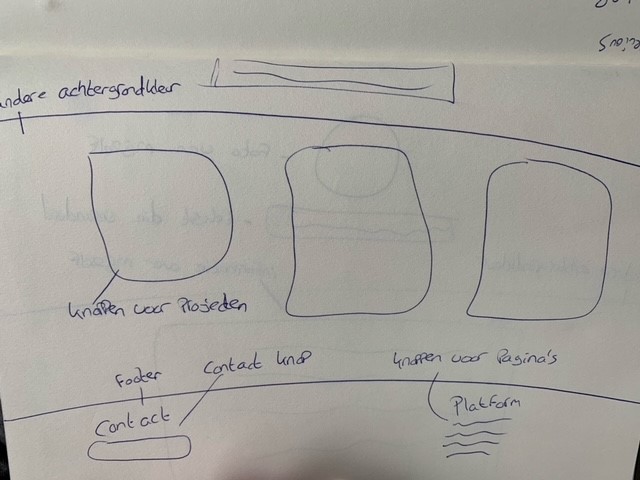 andere achtergrondkleur
knoppen voor Projecten
Footer
Contact knop
knoppen voor Pagina's
Contact
Platform